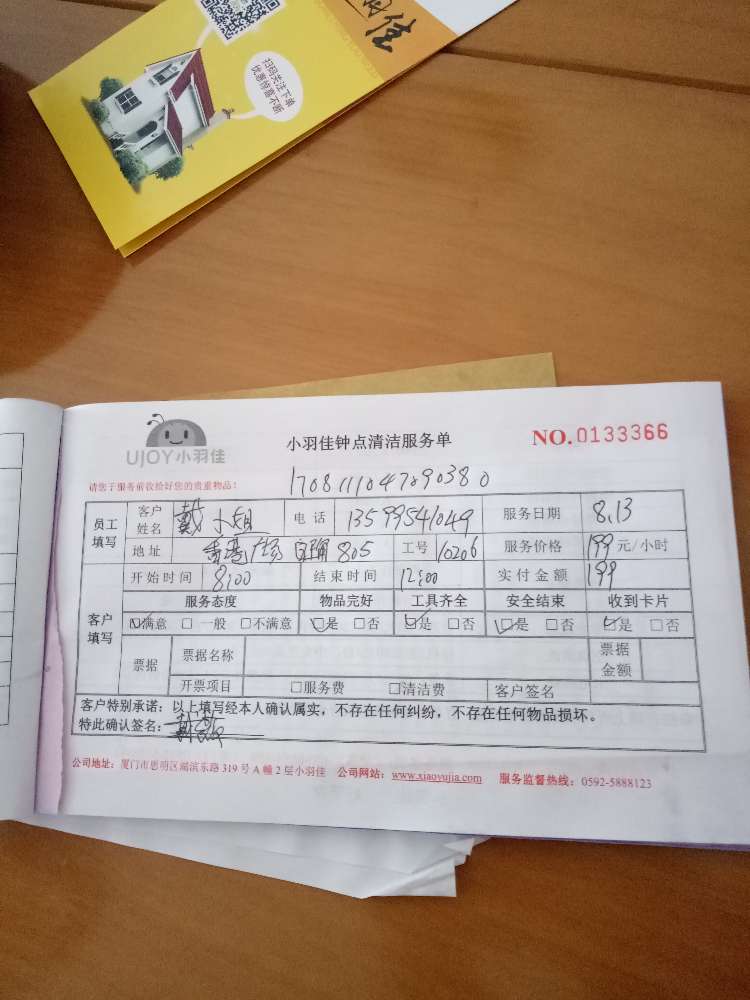 佳
扫码关注下单
优惠惊喜不断
UJOY小羽佳
小羽佳钟点清洁服务单
NO.0133366
请您于服务前收拾好您的贵重物品!
员工填写 客户姓名 戴小姐 电话 13599541049 服务日期 8.13
地址 广场 805 工号 10206 服务价格 199 元/小时
客户填写 开始时间 8:00 结束时间 12:00 实付金额 199
服务态度 物品完好 工具齐全 安全结束 收到卡片
☑满意 □一般 □不满意 ☑是 □否 ☑是 □否 ☑是 □否 ☑是 □否
票据 票据名称 票据金额
开票项目 □服务费 □清洁费 客户签名
客户特别承诺:以上填写经本人确认属实,不存在任何纠纷,不存在任何物品损坏。
特此确认签名:
公司地址:厦门市思明区湖滨东路 319 号 A 幢 2 层小羽佳 公司网站:www.xiaoyujia.com 服务监督热线:0592-5888123